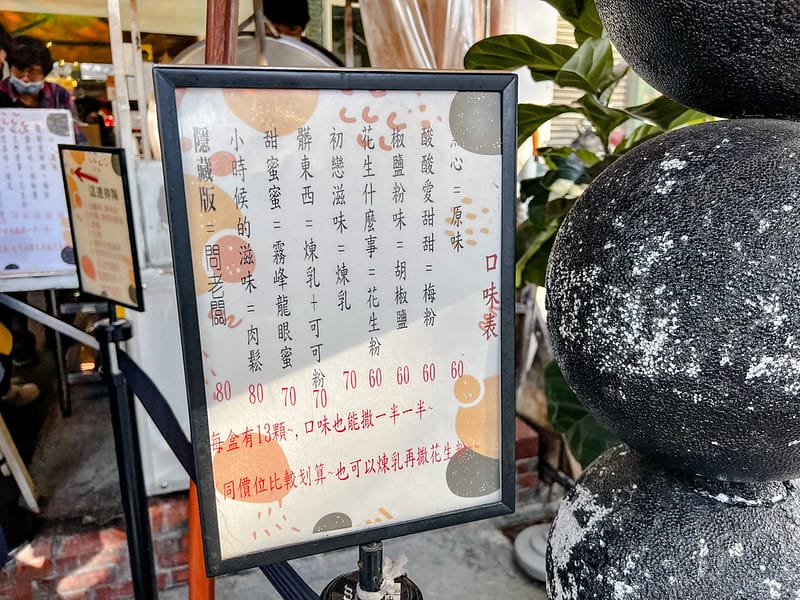 口味表
心=原味
酸酸愛甜甜=梅粉
椒鹽粉味=胡椒鹽
花生什麼事=花生粉
初戀滋味=煉乳
髒東西=煉乳+可可粉
甜蜜蜜=霧峰龍眼蜜
小時候的滋味=肉鬆
隱藏版=問老闆
60
60
60
60
70
70
70
80
80
每盒有13顆~,口味也能撒一半一半~
同價位比較划算~也可以煉乳再撒花生粉~